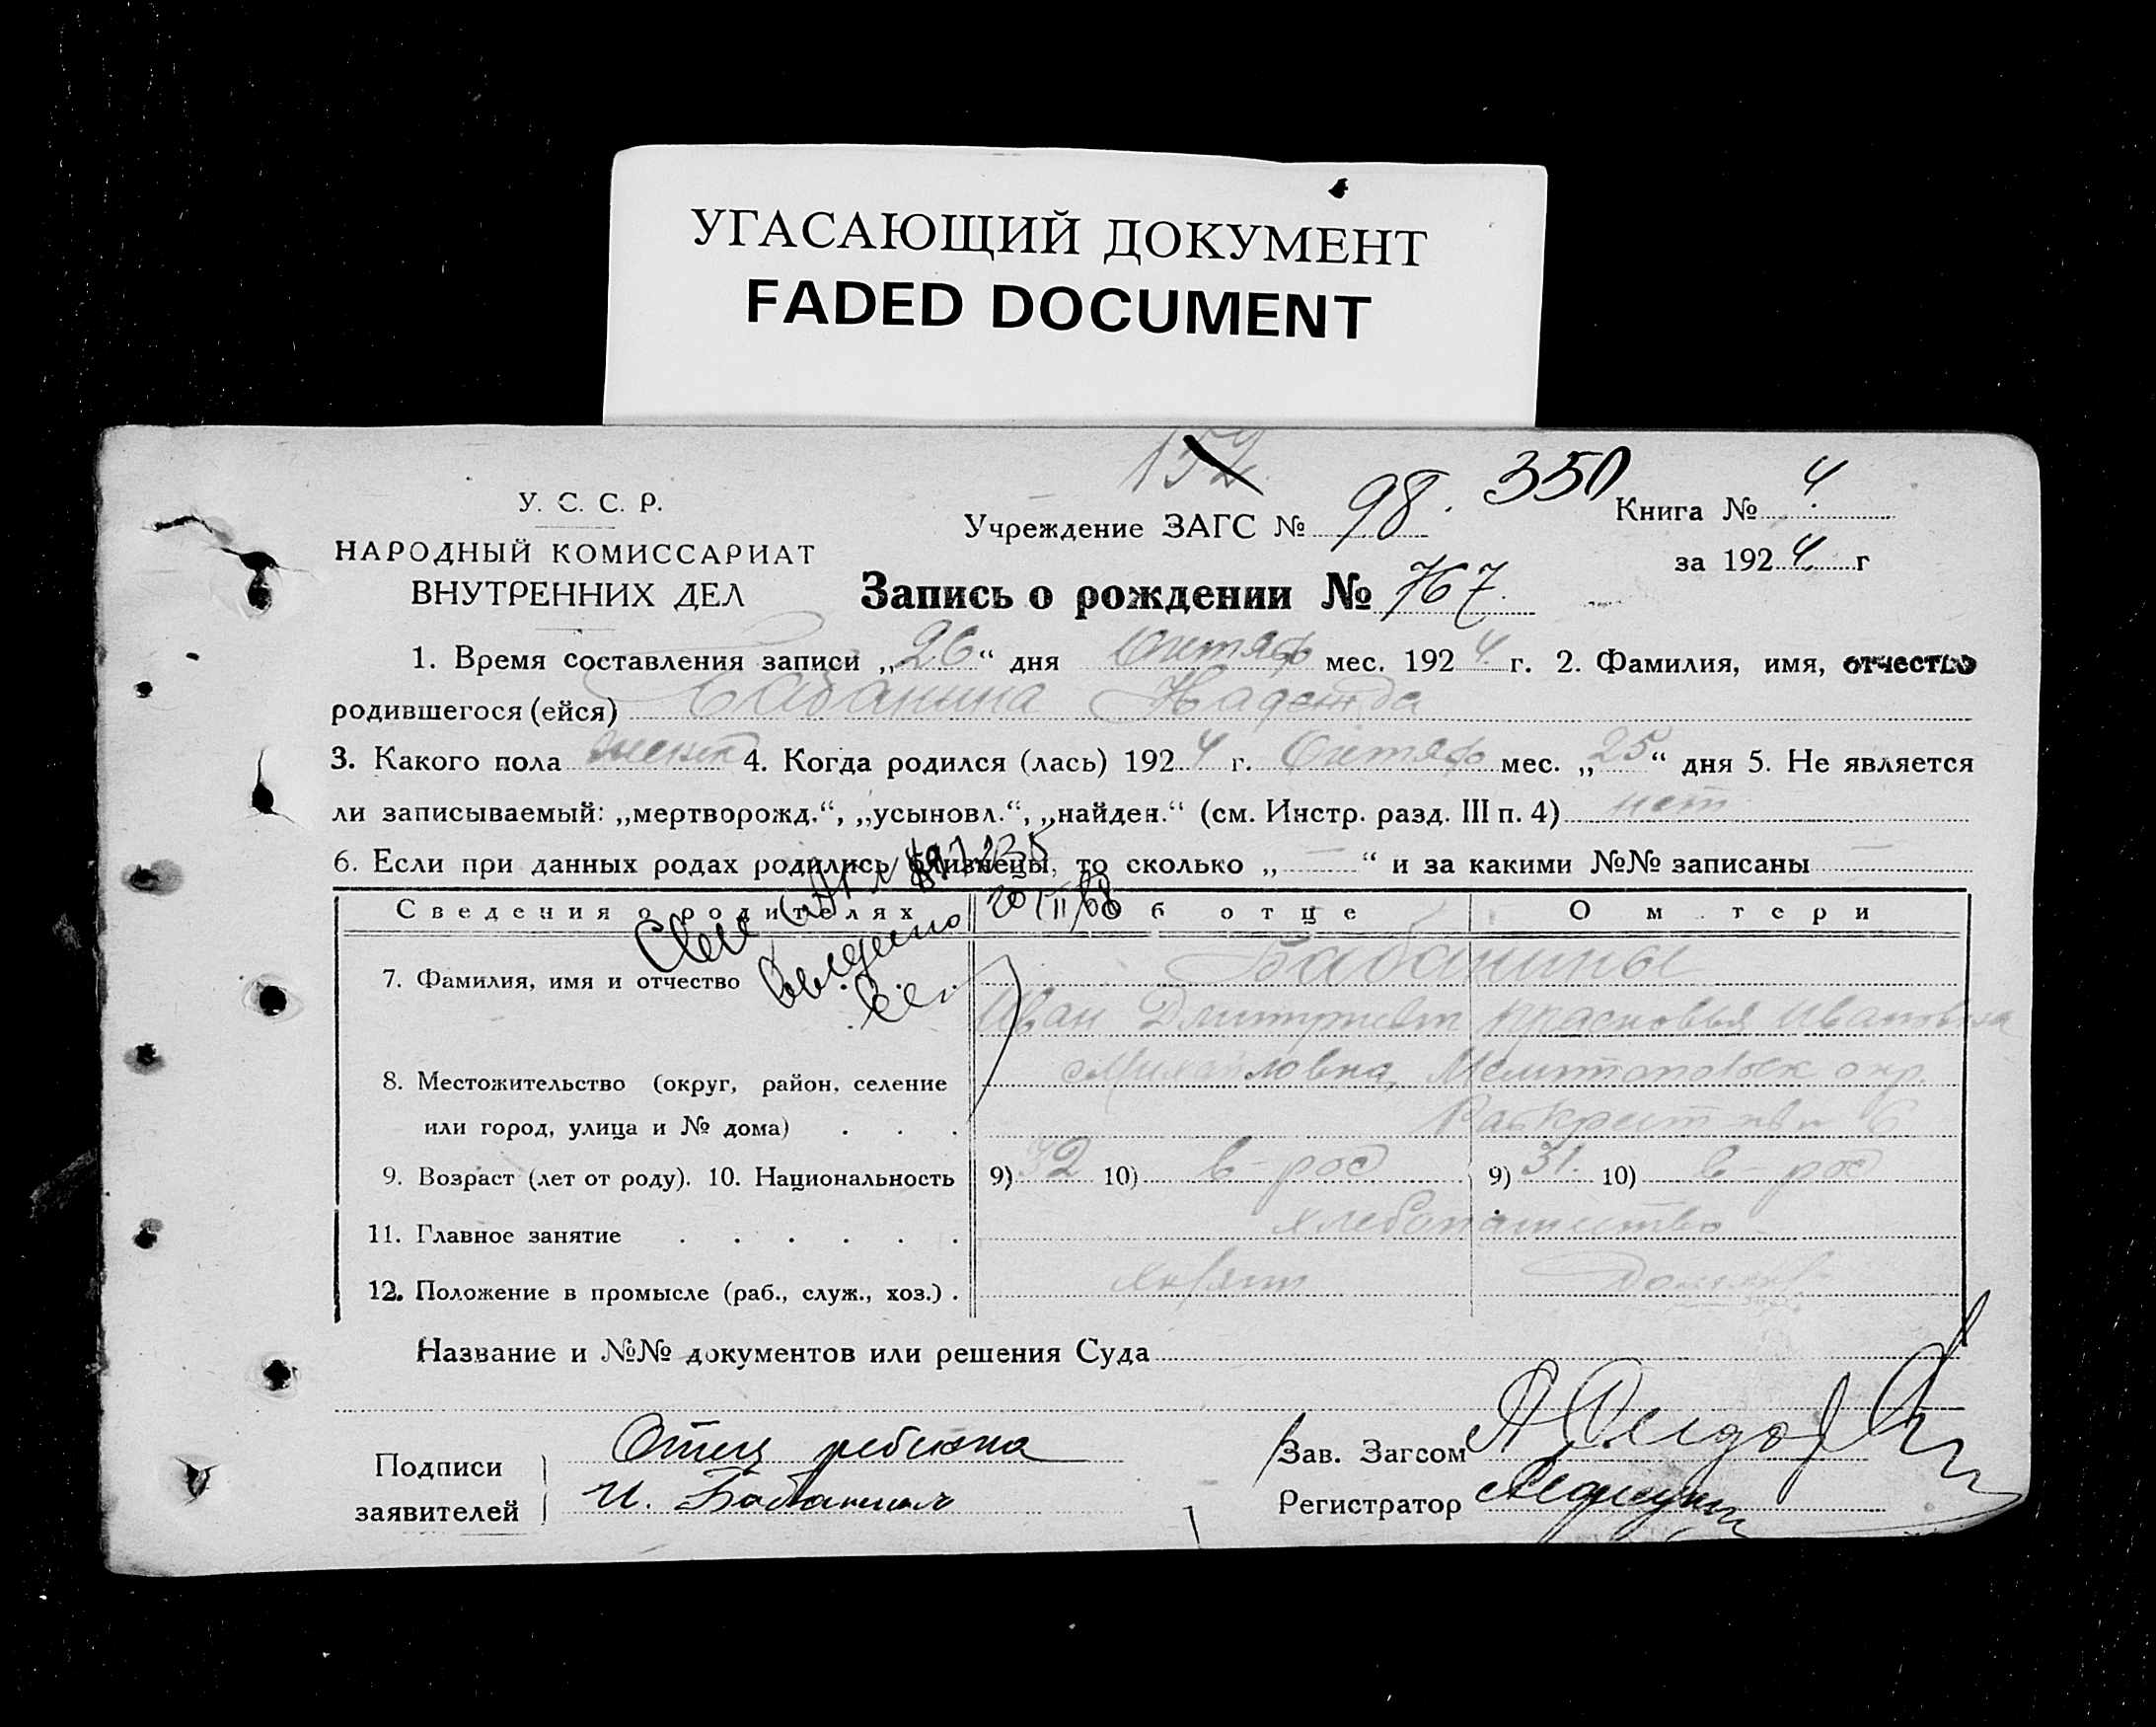 УГАСАЮЩИЙ ДОКУМЕНТ
FADED DOCUMENT
152
350
У. С. С. Р.
НАРОДНЫЙ КОМИССАРИАТ
ВНУТРЕННИХ ДЕЛ
Учреждение ЗАГС № 98.
Книга № 4
за 1924 г
Запись о рождении № 767
1. Время составления записи „26“ дня Октяб мес. 1924 г. 2. Фамилия, имя, отчество
родившегося (ейся) Бабанина Надежда
3. Какого пола женск 4. Когда родился (лась) 1924 г. Октяб мес. „25“ дня 5. Не является
ли записываемый: „мертворожд.“, „усыновл.“, „найден.“ (см. Инстр. разд. III п. 4) нет
6. Если при данных родах родились близнецы, то сколько „ — “ и за какими №№ записаны —
Сведения о родителях Об отце О м тери
7. Фамилия, имя и отчество Бабанины
Иван Дмитриевич Прасковья Ивановна
8. Местожительство (округ, район, селение Михайловка, Мелитопольск окр.
или город, улица и № дома) . . .
9. Возраст (лет от роду). 10. Национальность 9) 32 10) 9) 31. 10)
11. Главное занятие . . . . . . хлебопашество
12. Положение в промысле (раб., служ., хоз.) .
Название и №№ документов или решения Суда
Подписи Отец ребенка
заявителей И. Бабанин
Зав. Загсом
Регистратор